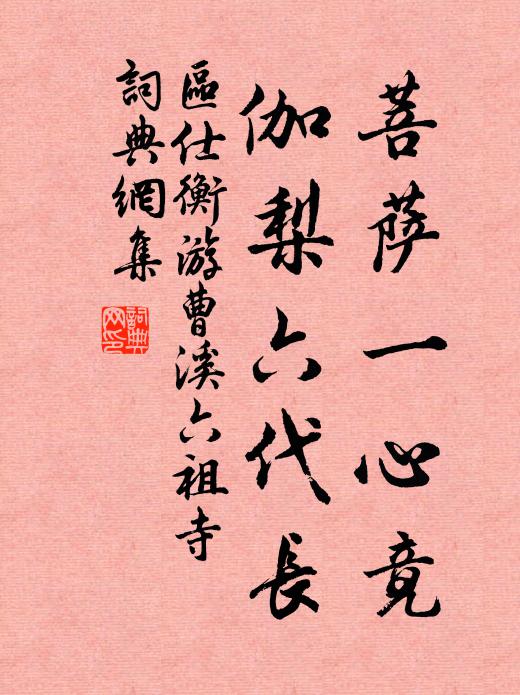 菩薩一心竟
伽梨六代長
區仕衡游曹溪六祖寺
詞典網集
詞典
网印